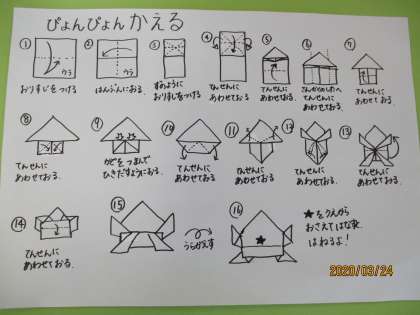 ぴょんぴょん かえる
① ② ③ ④ ⑤ ⑥ ⑦
ウラ
ウラ
おりすじをつける
はんぶんにおる。
ずのように
おりすじをつける
てんせんに
あわせておる
てんせんに
あわせておる。
さんかくのしたへ
てんせんに
あわせておる
てんせんに
あわせておる
⑧ ⑨ ⑩ ⑪ ⑫ ⑬
てんせんに
あわせておる
かどをつまんで
ひきだすようにおる
てんせんに
あわせておる
てんせんに
あわせておる
てんせんに
あわせておる
てんせんに
あわせておる
⑭ ⑮ ⑯
てんせんに
あわせておる。
うらがえす
★をうえから
おさえてはなすと
はねるよ!
2020/03/24